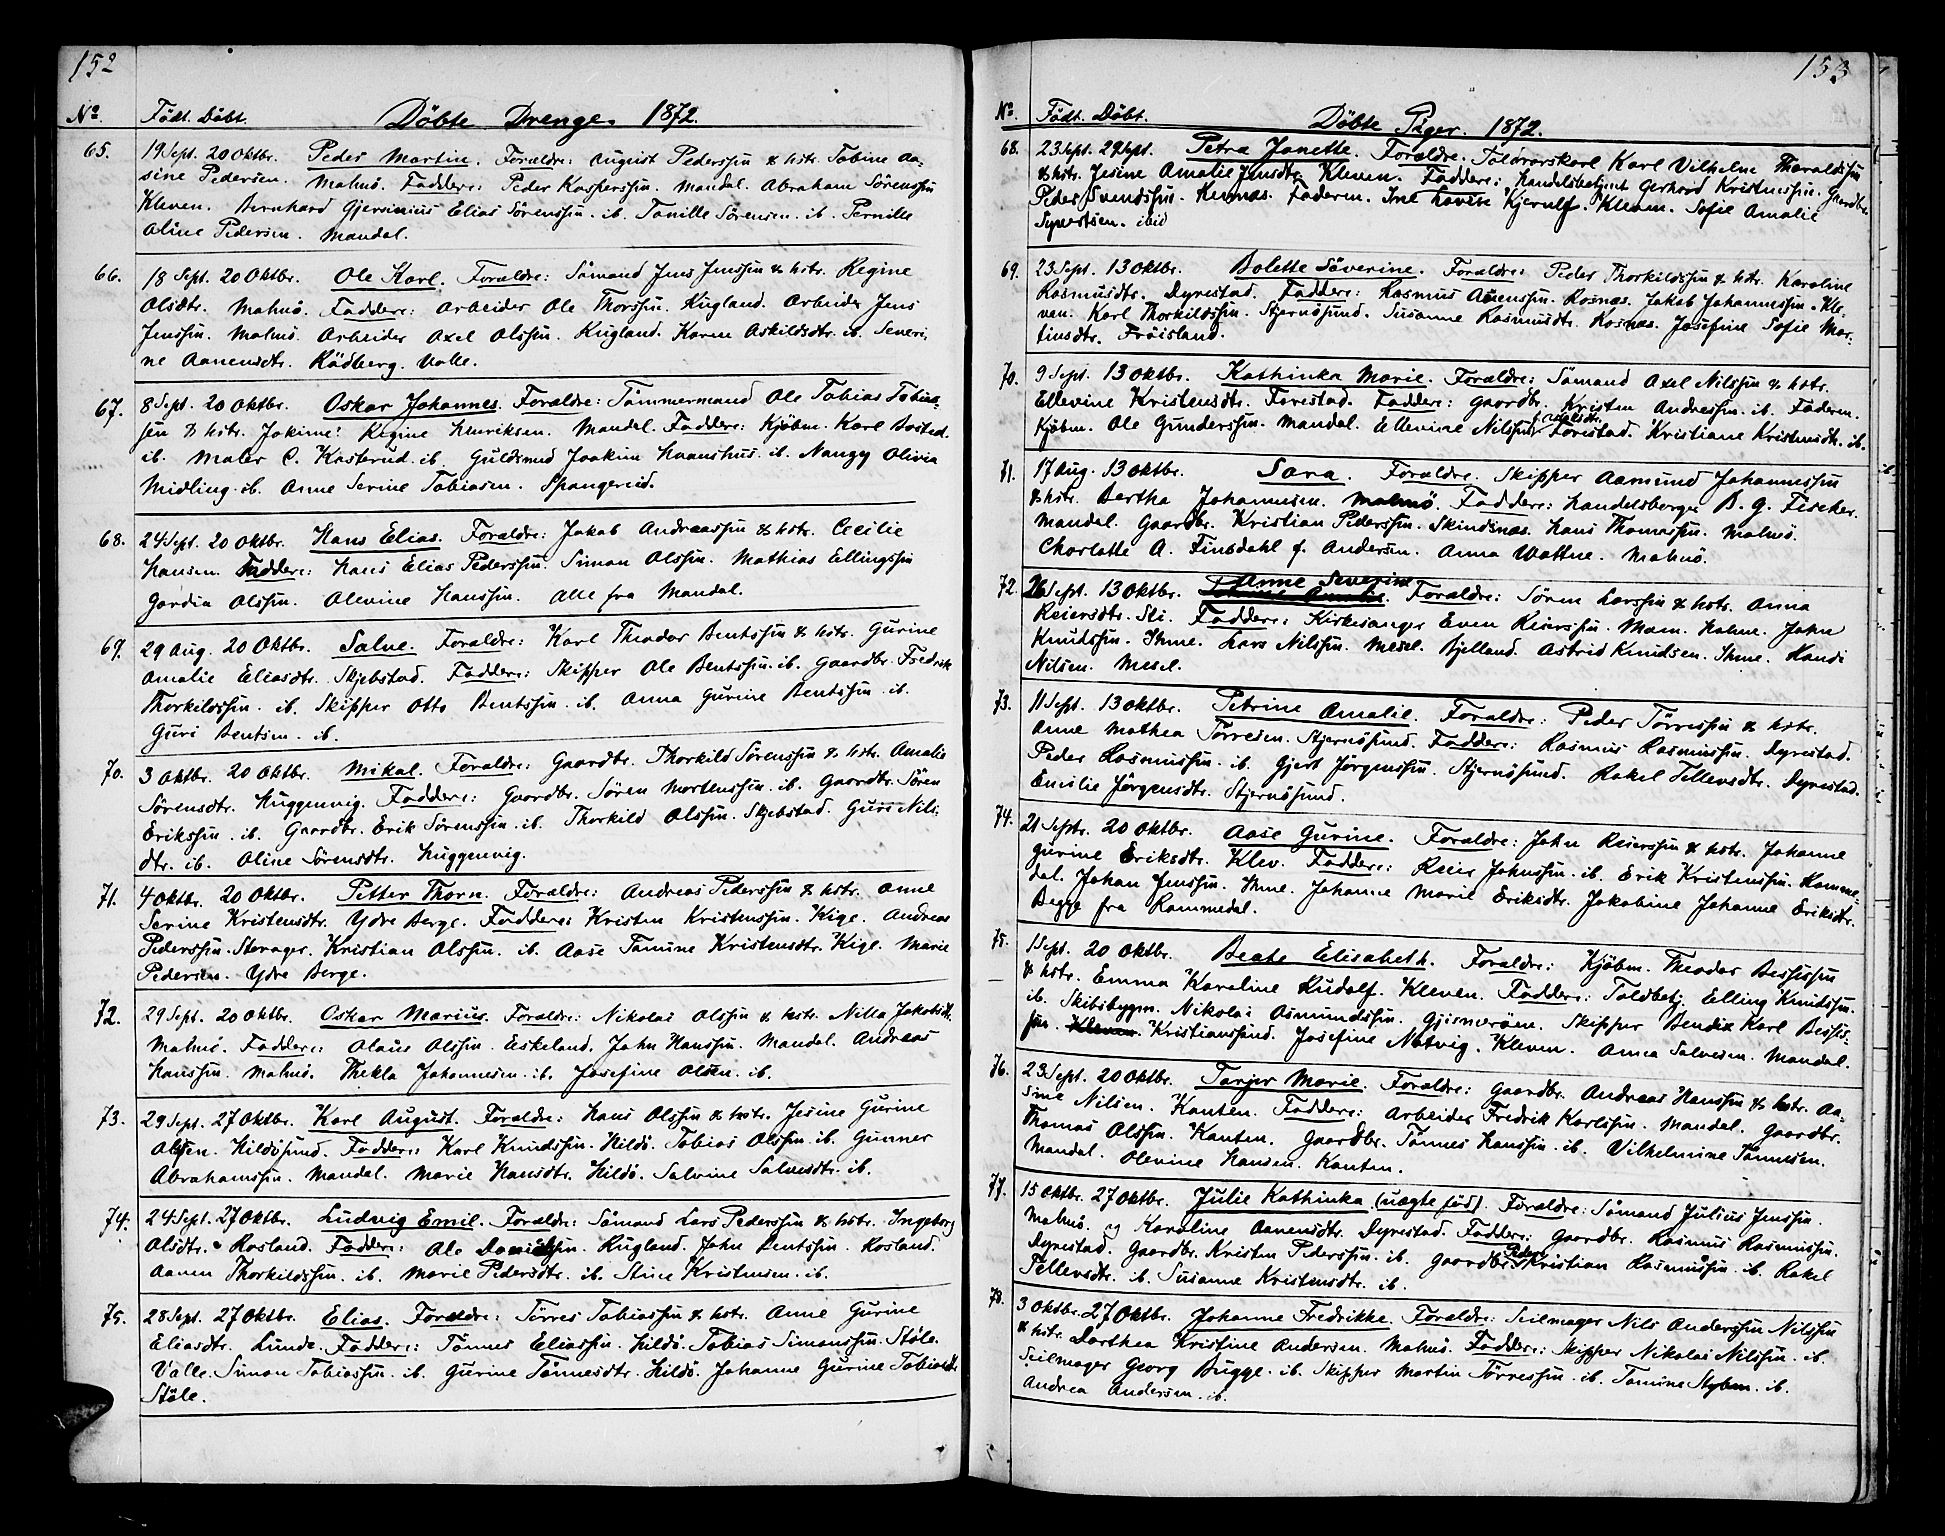 152
No. Födt. Döbt. Döbte Drenge. 1872.
65. 19 Sept. 20 Oktbr. Peder Martin. Forældre: August Pederssøn & hstr. Tobine Aa-
sine Pedersen. Malmö. Faddere: Peder Kasperssøn. Mandal. Abraham Sörenssøn
Kleven. Bernhard Gjerimius Elias Sörenssøn. ib. Tonille Sörensen. ib. Pernille
Oline Pedersen. Mandal.
66. 18 Sept. 20 Oktbr. Ole Karl. Forældre: Sömand Jens Jenssøn & hstr. Regine
Olsdtr. Malmö. Faddere: Arbeider Ole Thorssøn. Kugland. Arbeider Jens
Jenssøn. Malmö. Arbeider Axel Olssøn. Kugland. Karen Askildsdtr. ib. Severi-
ne Aanensdtr. Rödberg. Valle.
67. 8 Sept. 20 Oktbr. Oskar Johannes. Forældre: Tömmermand Ole Tobias Tobias-
søn & hstr. Jokime Regine Henriksen. Mandal. Faddere: Kjöbm. Karl Bosted.
ib. Maler C. Kasterud. ib. Guldsmed Joakim Kvanshus. ib. Nanzy Olivia
Midling. ib. Anne Serine Tobiasen. Spangereid.
68. 24 Sept. 20 Oktbr. Hans Elias. Forældre: Jakob Andreassøn & hstr. Cecilie
Hansen. Faddere: Hans Elias Pederssøn. Simon Olssøn. Mathias Ellingssøn
Gordia Olssøn. Olevine Hanssøn. Alle fra Mandal.
69. 29 Aug. 20 Oktbr. Salve. Forældre: Karl Theodor Bentssøn & hstr. Gurine
Amalie Eliasdtr. Skjebstad. Faddere: Skipper Ole Bentssøn. ib. Gaardbr. Fredrik
Thorkildssøn. ib. Skipper Otto Bentssøn. ib. Anna Gurine Bentssøn. ib.
Guri Bentsen. ib.
70. 3 Oktbr. 20 Oktbr. Mikal. Forældre: Gaardbr. Thorkild Sörenssøn & hstr. Amalie
Sörensdtr. Huggenvig. Faddere: Gaardbr. Sören Mortenssøn. ib. Gaardbr. Sören
Erikssøn. ib. Gaardbr. Erik Sörenssøn. ib. Thorkild Olssøn. Skjebstad. Guri Nils-
dtr. ib. Oline Sörensdtr. Huggenvig.
71. 4 Oktbr. 20 Oktbr. Petter Thorn. Forældre: Andreas Pederssøn & hstr. Anne
Serine Kristensdtr. Ydre Berge. Faddere: Kristen Kristenssøn. Kige. Andreas
Pederssøn. Kristian Olssøn. ib. Aase Tomine Kristensdtr. Kige. Marie
Pedersen. Ydre Berge.
72. 29 Sept. 20 Oktbr. Oskar Marius. Forældre: Nikolai Olssøn & hstr. Nilla Jakobsdtr.
Malmö. Faddere: Olaus Olssøn. Eskeland. John Hanssøn. Mandal. Andreas
Hanssøn. Malmö. Thekla Johannesen. ib. Josefine Olsen. ib.
73. 29 Sept. 27 Oktbr. Karl August. Forældre: Hans Olssøn & hstr. Jesine Gurine
Olsen. Hildösund. Faddere: Karl Knudssøn. Hildö. Tobias Olssøn. ib. Gunner
Abrahamssøn. Mandal. Marie Hansdtr. Hildö. Salvine Salvesdtr. ib.
74. 24 Sept. 27 Oktbr. Ludvig Emil. Forældre: Sömand Lars Pederssøn & hstr. Ingeborg
Olsdtr. Rosland. Faddere: Ole Danielssøn. Kugland. John Bentssøn. Rosland.
Aanen Thorkildssøn. ib. Marie Pedersdtr. ib. Stine Kristensen. ib.
75. 28 Sept. 27 Oktbr. Elias. Forældre: Törres Tobiassøn & hstr. Anne Gurine
Eliasdtr. Lunde. Faddere: Tönnes Eliassøn. Hildö. Tobias Simonssøn. Stöle.
Valle. Simon Tobiassøn. ib. Gurine Tönnesdtr. Hildö. Johanne Gurine Tobiasdtr.
Stöle.
153
No. Födt. Döbt. Döbte Piger. 1872.
68. 23 Sept. 29 Sept. Petra Janette. Forældre: Toldrorskarl Karl Vilhelm Tharaldssøn
& hstr. Jesine Amalie Jensdtr. Kleven. Faddere: Handelsbetjent Gerhard Kristenssøn. Gaardbr.
Peder Svendssøn. Faderen. Ine Lovise Kjerulf. Kleven. Sofie Amalie
Syvertsen. ibid
69. 23 Sept. 13 Oktbr. Bolette Söverine. Forældre: Peder Thorkildssøn & hstr. Karoline
Rasmusdtr. Dyrestad. Faddere: Rasmus Aanenssøn. Rosnæs. Jakob Johannessøn. Kle-
ven. Karl Thorkildssøn. Stjernösund. Susanne Rasmusdtr. Rosnæs. Josefine Sofie Mor-
tensdtr. Fröisland.
70. 9 Sept. 13 Oktbr. Kathinka Marie. Forældre: Sömand Axel Nilssøn & hstr.
Ellevine Kristensdtr. Forestad. Faddere: Gaardbr. Kristen Andreassøn. ib. Faderen.
Kjöbm. Ole Gunderssøn. Mandal. Ellevine Nilssøn Forestad. Kristiane Kristensdtr. ib.
71. 17 Aug. 13 Oktbr. Sara. Forældre. Skipper Aamund Johannessøn
& hstr. Bertha Johannesen. Malmö. Faddere: Handelsborger B. G. Fischer.
Mandal. Gaardbr. Kristian Pederssøn. Skindsnæs. Hans Thomassøn. Malmö.
Charlotte A. Finsdahl f. Andersen. Anna Wattne. Malmö.
72. 26 Sept. 13 Oktbr. Anne Severine. Forældre: Sören Larssøn & hstr. Anna
Reiersdtr. Sli. Faddere: Kirkesanger Even Reierssøn. Moen. Holme. John
Knudssøn. Ihme. Lars Nilssøn. Mesel. Bjelland. Astrid Knudsen. Ihme. Kandi
Nilsen. Mesel.
73. 11 Sept. 13 Oktbr. Petrine Amalie. Forældre: Peder Törressøn & hstr.
Anne Mathea Törresen. Stjernösund. Faddere: Rasmus Rasmussøn. Dyrestad.
Peder Rasmussøn. ib. Gjert Jörgenssøn. Stjernösund. Rakel Tellevsdtr. Dyrestad.
Emilie Jörgensdtr. Stjernösund.
74. 21 Septr. 20 Oktbr. Aase Gurine. Forældre: John Reierssøn & hstr. Johanne
Gurine Eriksdtr. Klev. Faddere: Reier Johnssøn. ib. Erik Kristenssøn. Homme-
dal. Johan Jenssøn. Ihme. Johanne Marie Eriksdtr. Jakobine Johanne Eriksdtr.
Begge fra Rommedal.
75. 1 Sept. 20 Oktbr. Beate Elisabeth. Forældre: Kjöbm. Theodor Bessessøn
& hstr. Emma Karoline Rudolf. Kleven. Faddere: Toldbetj. Elling Knudssøn.
ib. Skibsbygm. Nikolai Osmundssøn. Gjismeröen. Skipper Bendix Karl Besses-
søn. Kristianssund. Josefine Natvig. Kleven. Anna Salvesen. Mandal.
76. 23 Sept. 20 Oktbr. Tarjer Marie. Forældre: Gaardbr. Andreas Hanssøn & hstr. Aa-
sine Nilsen. Kanten. Faddere: Arbeider Fredrik Karlssøn. Mandal. Gaardbr.
Thomas Olssøn. Kanten. Gaardbr. Tönnes Hanssøn. ib. Vilhelmine Tönnesen.
Mandal. Olevine Hansen. Kanten.
77. 15 Oktbr. 27 Oktbr. Julie Kathinka (uægte fød). Forældre: Sömand Julius Jenssøn.
Malmö. og Karoline Aanensdtr. Dyrestad. Faddere: Gaardbr. Rasmus Rasmussøn.
Dyrestad. Gaardbr. Kristen Pederssøn. ib. Gaardbr. Peder Kristian Rasmussøn. ib. Rakel
Tellevsdtr. ib. Susanne Kristensdtr. ib.
78. 3 Oktbr. 27 Oktbr. Johanne Fredrikke. Forældre: Seilmager Nils Anderssøn Nilssøn
& hstr. Dorthea Kristine Andersen. Malmö. Faddere: Skipper Nikolai Nilssøn. ib.
Seilmager Georg Bugge. ib. Skipper Martin Törressøn. ib. Tomine ib.
Andrea Andersen. ib.